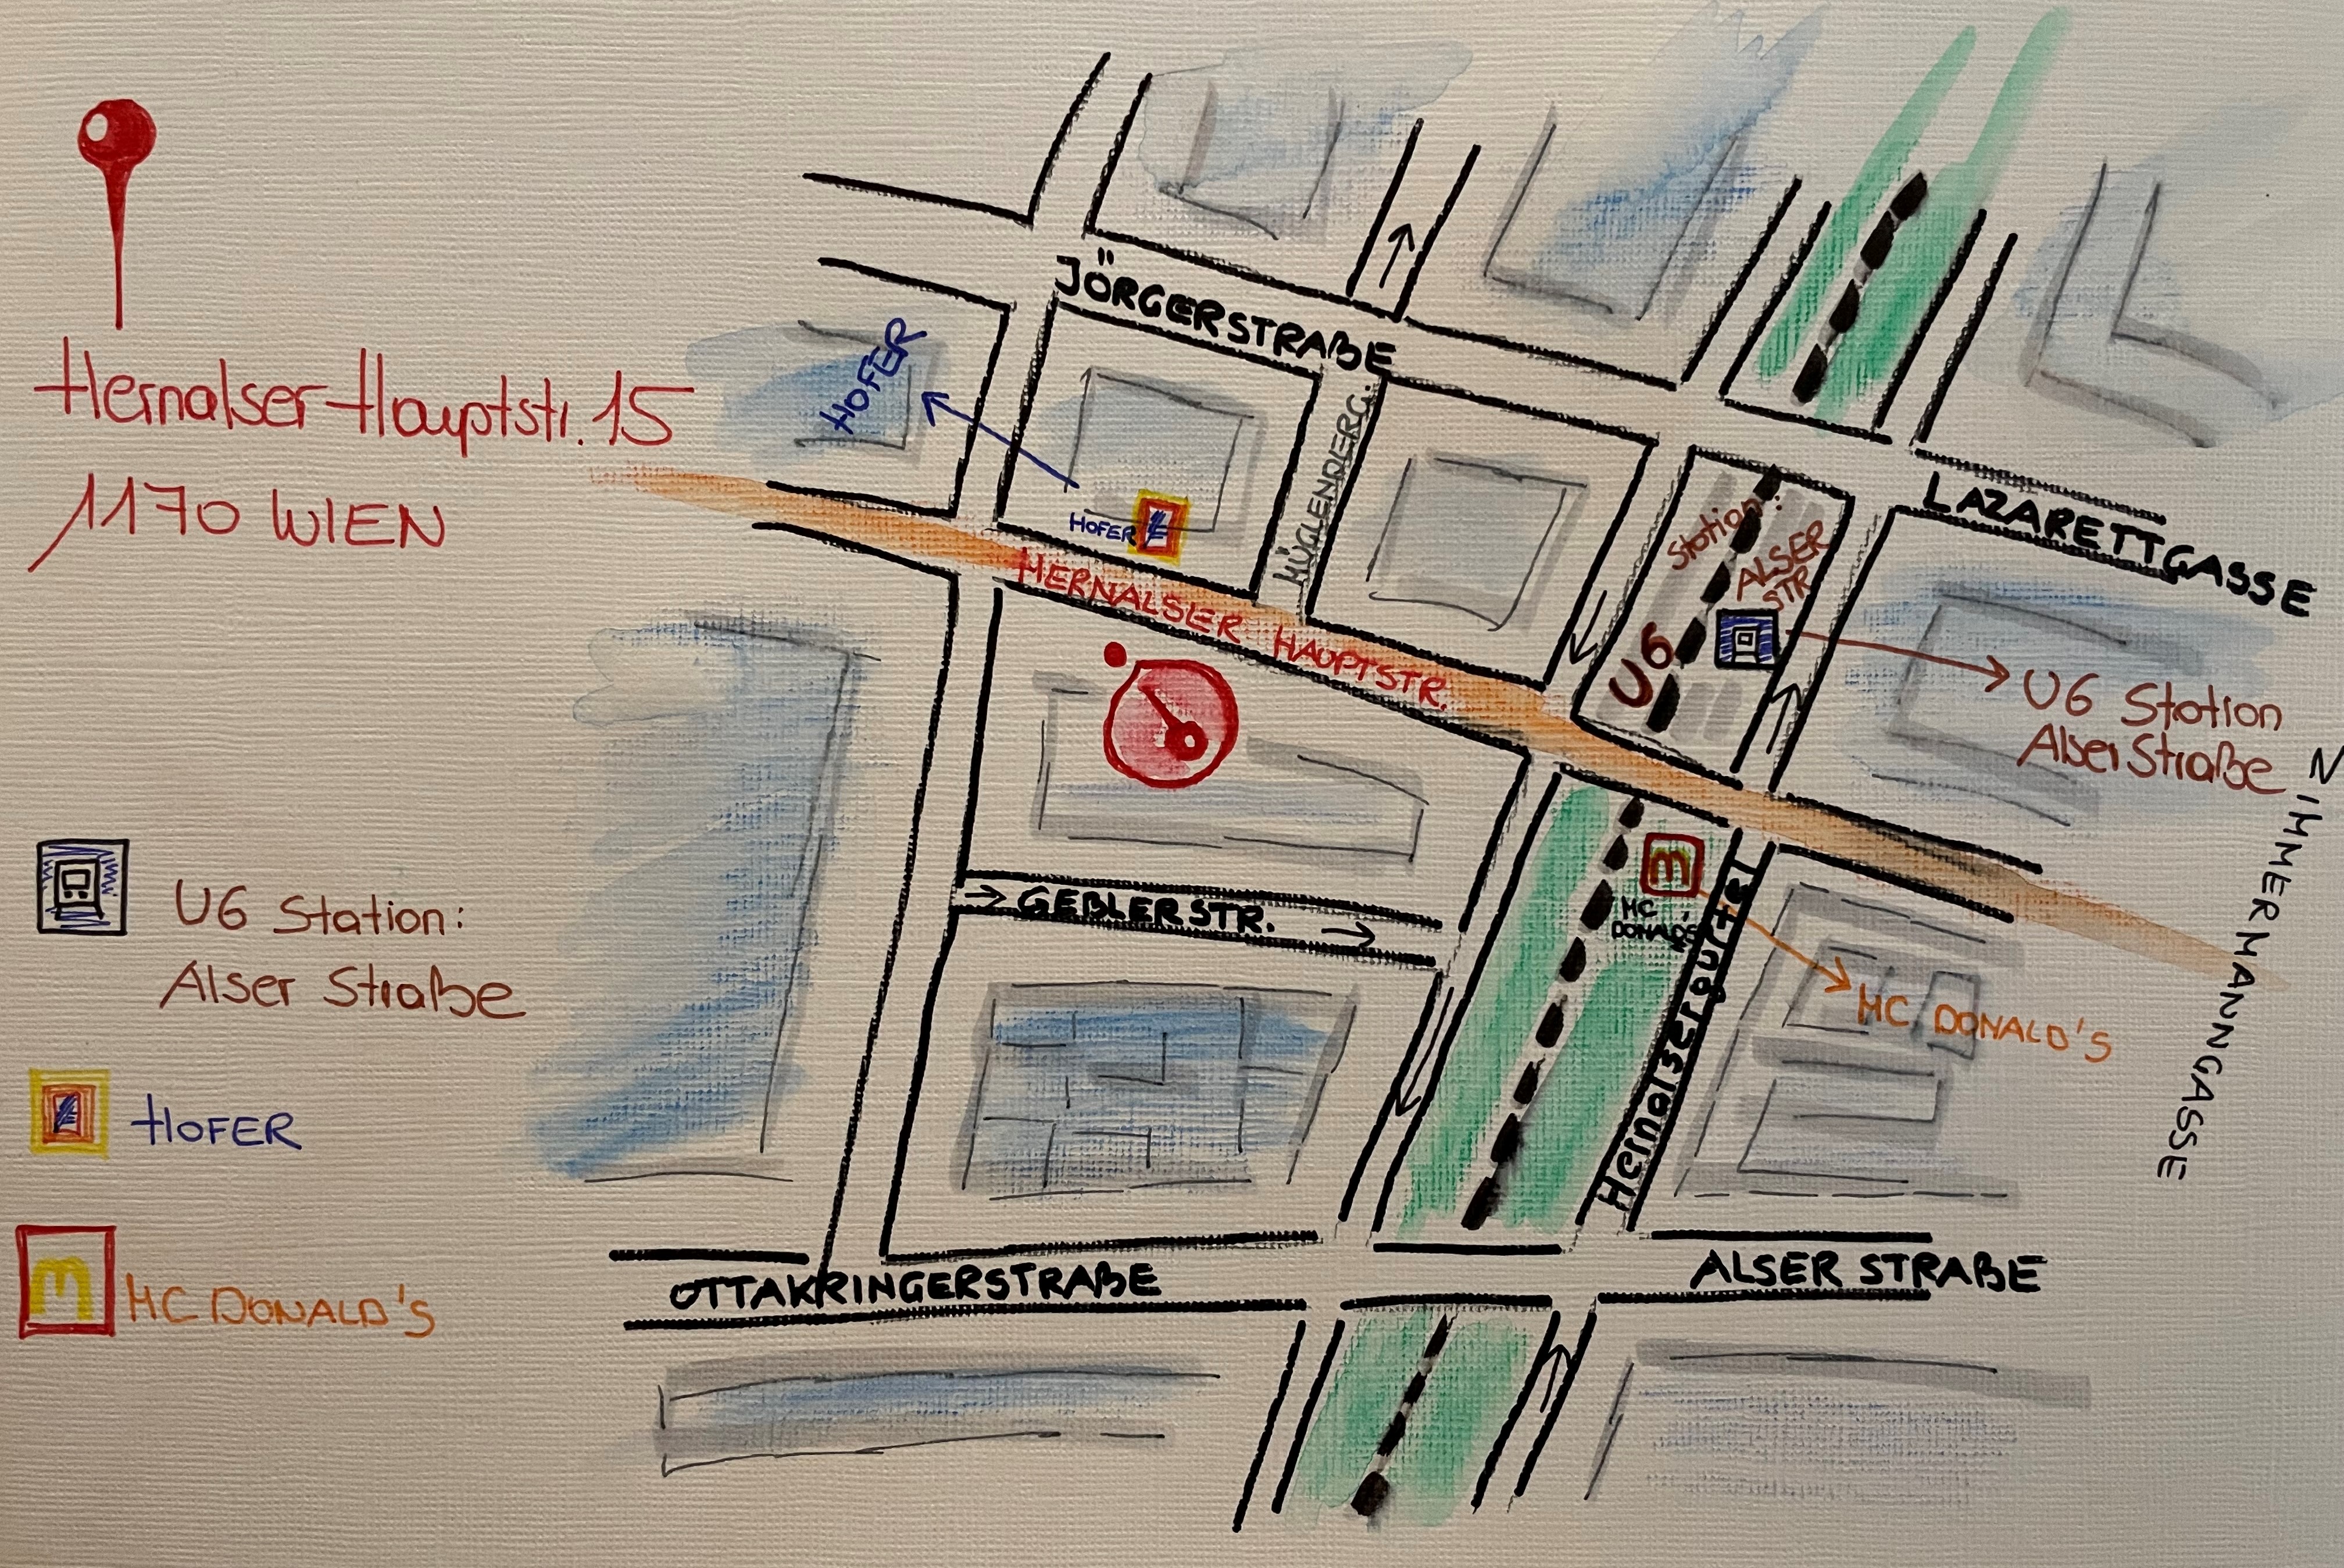 Hernalser Hauptstr. 15
1170 WIEN
U6 Station:
Alser Straße
HOFER
m
MC DONALD'S
JÖRGERSTRAßE
HOFER
HOFER
MÜGLENDERG.
HERNALSER HAUPTSTR.
Station:
ALSER
STR
U6
LAZARETTGASSE
U6 Station
Alser Straße
ZIMMERMANNGASSE
m
MC
DONALD'S
MC DONALD'S
Hernalsergürtel
GEBLERSTR.
OTTAKRINGERSTRAßE
ALSER STRAßE